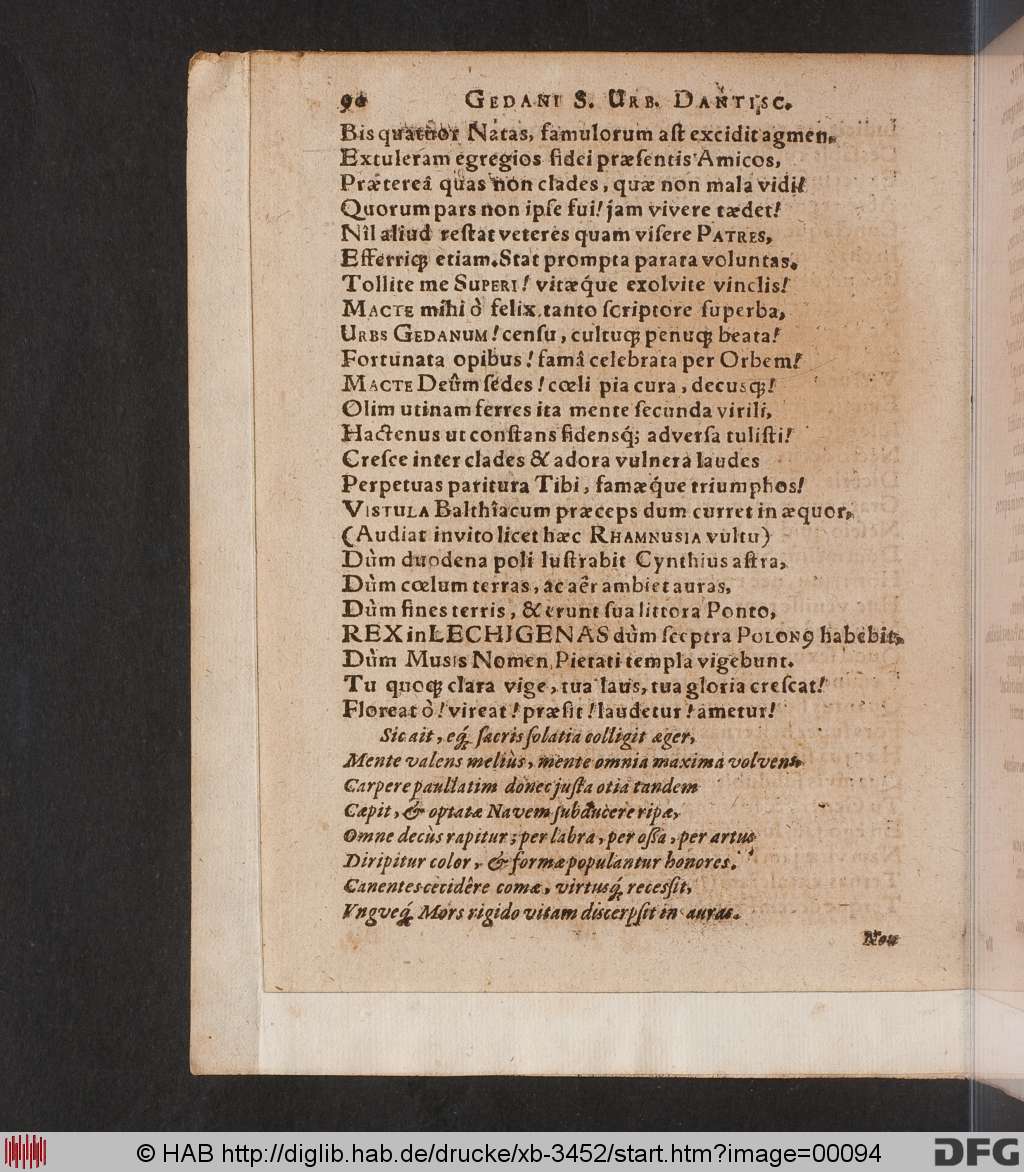 90 GEDANI S. URB. DANTISC.
Bis quatuor Natas, famulorum aſt excidit agmen.
Extuleram egregios fidei præſentis Amicos,
Prætereâ quas non clades, quæ non mala vidi!
Quorum pars non ipſe fui! jam vivere tædet!
Nîl aliud reſtat veteres quam viſere PATRES,
Efferriq; etiam. Stat prompta parata voluntas.
Tollite me SUPERI! vitæq́ue exolvite vinclis!
MACTE mihi ò felix, tanto ſcriptore ſuperba,
URBS GEDANUM! cenſu, cultuq; penuq; beata!
Fortunata opibus! famâ celebrata per Orbem!
MACTE Deûm ſedes! cœli pia cura, decusq;!
Olim utinam ferres ita mente ſecunda virili,
Hactenus ut conſtans fidensq́; adverſa tuliſti!
Creſce inter clades & adora vulnera laudes
Perpetuas paritura Tibi, famæq́ue triumphos!
VISTULA Balthîacum præceps dum curret in æquor,
(Audiat invito licet hæc RHAMNUSIA vultu)
Dùm duodena poli luſtrabit Cynthius aſtra,
Dùm cœlum terras, ac aêr ambiet auras,
Dùm fines terris, & erunt ſua littora Ponto,
REX in LECHIGENAS dùm ſceptra POLONꝰ habebit,
Dùm Musis Nomen, Pietati templa vigebunt.
Tu quoq; clara vige, tua laus, tua gloria creſcat!
Floreat ò! vireat! præſit! laudetur! ametur!
Sic ait, eq́; ſacris ſolatia colligit æger,
Mente valens meliùs, mente omnia maxima volvens,
Carpere paullatim donec juſta otia tandem
Cæpit, & optatæ Navem ſubducere ripæ,
Omne decùs rapitur; per labra, per oſſa, per artus
Diripitur color, & formæ populantur honores.
Canentes cecidêre comæ, virtusq́; receſſit,
Vngveq́; Mors rigido vitam diſcerpſit in auras.
Non
© HAB http://diglib.hab.de/drucke/xb-3452/start.htm?image=00094
DFG